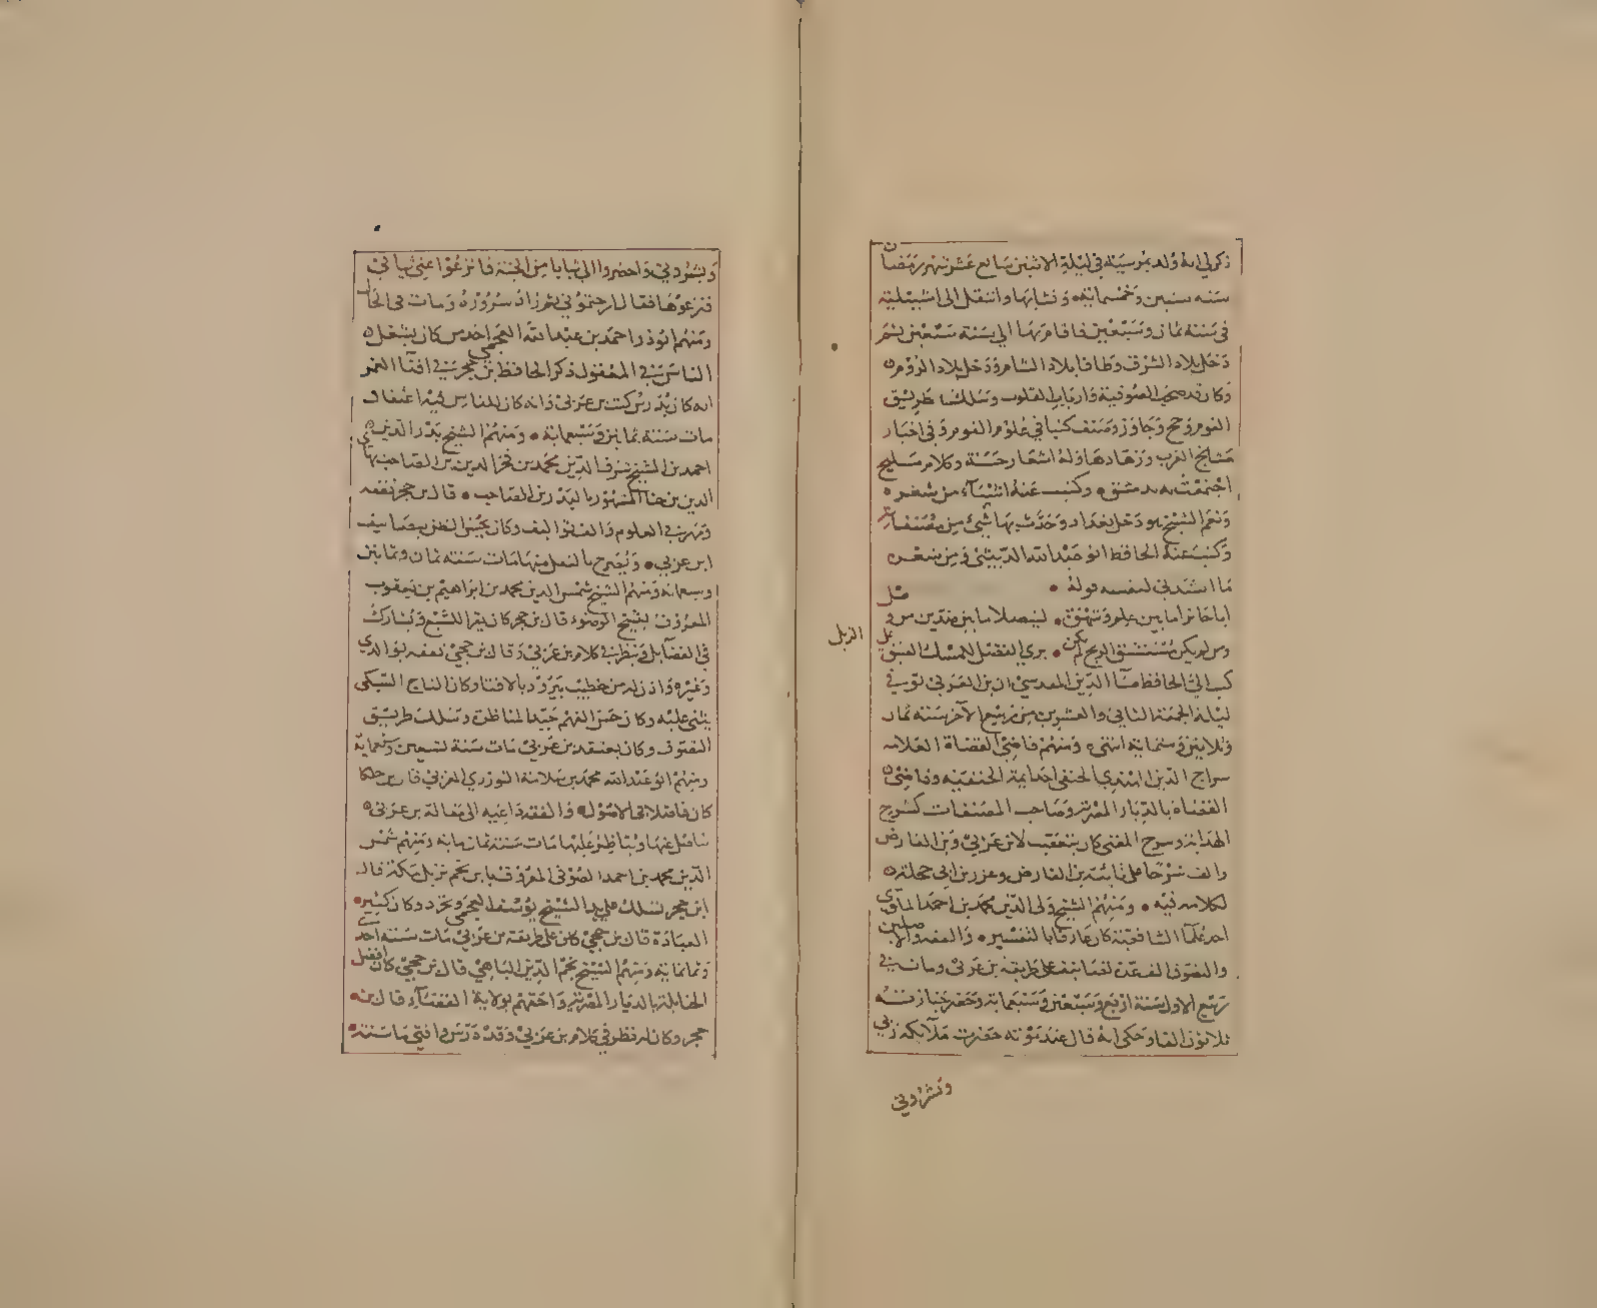 ذكر لي انه ولد بمرسية في ليلة الاثنين سابع عشر شهر رمضان
سنه ستين وخمسمائة ونشا بها وانتقل الى اشبيلية
في سنة ثمان وسبعين فاقام بها الى سنة تسعين ثم
دخل بلاد الشرق وطاف بلاد الشام ودخل بلاد الروم
وكان قد صحب الصوفية وارباب القلوب وسلك طريق
القوم وحج وجاوز وصنف كتبا في علوم القوم وفي اخبار
مشايخ الغرب وزهادها وله اشعار حسنة وكلام مليح
اجتمعت به بدمشق وكتبت عنه اشياء من شعره
ونعم الشيخ هو دخل بغداد وحدث بها بشيء من مصنفاته
وكتب عنه الحافظ ابو عبد الله الدبيثي ومن شعره
ما انشدني لنفسه قوله
ايا حائرا ما بين علم وشهوة ليتصلا ما بين ضدين من وصل
ومن لم يكن يستنشق الريح لم يكن يرى الفضل للمسك الفتيق على
الزبل
كتب الي الحافظ ضيا الدين المقدسي ان ابن العربي توفي
ليلة الجمعة الثاني والعشرين من ربيع الاخر سنة ثمان
وثلاثين وستمائة انتهى ومنهم قاضي القضاة العلامه
سراج الدين الهندي الحنفي احد ايمة الحنفية وقاضي
القضاة بالديار المصرية وصاحب المصنفات كشرح
الهداية وشرح المغني كان يتعصب لابن عربي وبن الفارض
والف شرحا على تائية بن الفارض وعزر بن ابي حجلة
لكلامه فيه ومنهم الشيخ ولي الدين محمد بن احمد الملوي
احد علما الشافعية كان عارفا بالتفسير والفقه والاصلين
والتصوف على طريقة بن عربي ومات في
ربيع الاول سنة اربع وسبعين وسبعمائة وحضر جنازته
ثلاثون الفا وحكي انه قال عند موته حضرت ملائكة ربي
وبشروني
وبشروني واحضروا الي ثيابا من الجنة فانزعوا عني ثيابي
فنزعوها فقال ارحتموني ثم زاد سروره ومات في الحال
ومنهم ابوذر احمد بن عبد الله العجمي احد من كان يشغل
الناس في المعقول ذكر الحافظ بن حجر في انباء الغمر
انه كان يدرس كتب بن عربي وانه كان للناس فيه اعتقاد
مات سنة ثمانين وسبعماية ومنهم الشيخ بدر الدين
احمد بن الشيخ شرف الدين محمد بن فخر الدين بن الصاحب بها
الدين بن حنا المشهور بالبدر بن الصاحب قال بن حجر تفقه
ومهر في العلوم والف تواليف وكان يحسن الظن بتصانيف
ابن عربي مات سنة ثمان وثمانين
وسبعمائة ومنهم الشيخ شمس الدين محمد بن ابراهيم بن يعقوب
المعروف بشيخ الوضوء قال بن حجر كان يقرا السبع ويشارك
في الفضايل وينظر في كلام بن عربي وقال بن حجي تفقه بوالدي
وغيره واذن له بن خطيب يبرود بالافتا وكان التاج السبكي
يثني عليه وكان حسن الفهم جيد المناظرة وسلك طريق
التصوف وكان يعتقد بن عربي مات سنة تسعين وسبعمائة
ومنهم ابو عبد الله محمد بن سلامة التوزري المغربي
كان فاضلا في الاصول والفقه داعية الى مقالة بن عربي
يناضل عنها ويناظر عليها مات سنة ثمانمايه ومنهم شمس
الدين محمد بن احمد الصوفي المعروف بابن نجم نزيل مكة قال
ابن حجر تسلك على يد الشيخ يوسف العجمي وتجرد وكان كثير
العبادة قال بن حجي كان على طريقة بن عربي مات سنة احدى
وثمانمائة ومنهم الشيخ نجم الدين الباهي قال بن حجي كان افضل
الحنابلة بالديار المصرية واحقهم بولاية القضاء قال بن
حجر وكان له نظر في كلام بن عربي وقد درس وافتى مات سنة